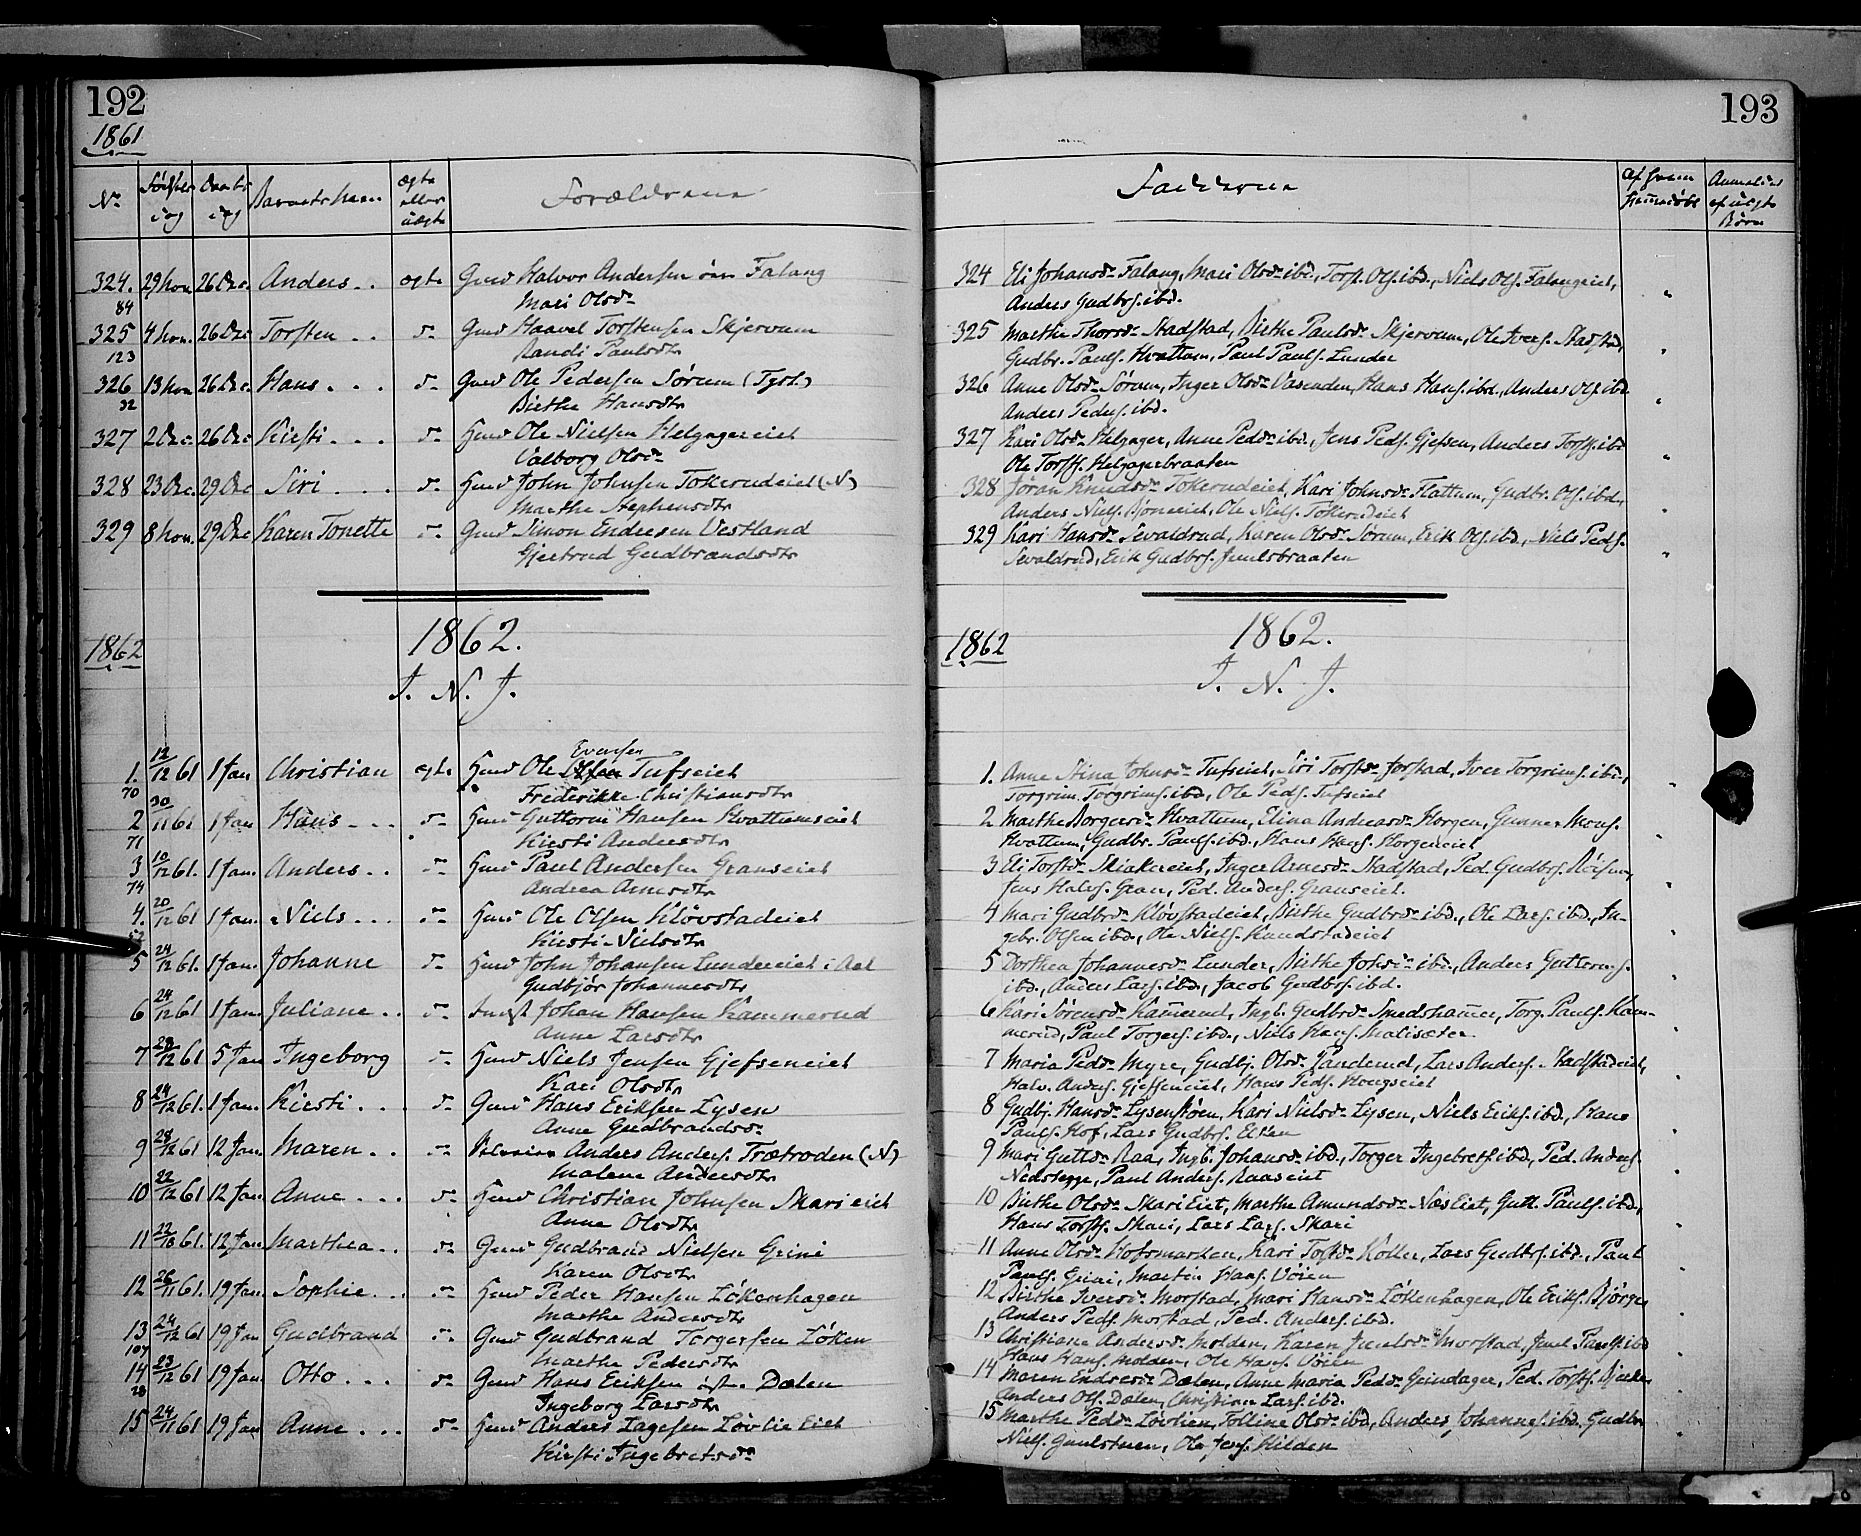 192
1861
No
Fødsels dag
Daabs dag
Barnets Navn
ægte eller uægte
Forældrene
324. 29 Nov. 26 Dec. Anders . . ægte Gmd Halvor Andersen Falang
84 Mari Olsdr
325 4 Nov. 26 Dec Torsten . . do Gmd Haavel Torstensen Skjervum
123 Randi Paulsdtr
326 13 Nov 26 Dec Hans . . . do Gmd Ole Pedersen Sørum
32 Birthe Hansdtr
327 2 Dec. 26 Dec Kirsti . . . do Hmd Ole Nielsen Helgagereiet
Valborg Olsdr
328 23 Dec. 29 Dec Siri . . . do Hmd John Johnsen Tokerudeiet (N)
Marthe Stephensdtr
329 8 Nov. 29 Dec Karen Tonette do Gmd Simon Endresen Vestland
Gjertrud Gudbrandsdtr
1862
1862.
I. N. J.
Evensen
1. 12/12 61 1 Jan Christian ægte Hmd Ole Tufseiet
70 Frederikke Christiansdtr
2 30/11 61 1 Jan Hans . . . do Hmd Guttorm Hansen Hvattumseiet
71 Kirsti Andersdtr
3 10/12 61. 1 Jan. Anders . . do Hmd Paul Andersen Granseiet
74 Andrea Arnesdtr
4. 20/12 61 1 Jan. Niels . . . do Hmd Ole Olsen Kløvstadeiet
52 Kirsti Nielsdtr
5 24/12 61. 1 Jan. Johanne do Hmd John Johansen Lundereiet i Aal
Gudbjør Johannesdtr
6 24/12 61 1 Jan. Juliane . . do Indst Johan Hansen Kammerud
Anne Larsdtr
7 29/12 61 5 Jan Ingeborg do Hmd Niels Jensen Gjefseneiet
Kari Olsdtr
8 24/12 61. 1 Jan. Kirsti . . . do Gmd Hans Eriksen Lysen
Anne Gudbrandsdr
9 28/12 61 12 Jan. Maren . . do Anders Anders. Trætroden (N)
Malene Andersdtr
10 22/12 61 12 Jan. Anne . . . do Hmd Christian Johnsen Skarieiet
Anne Olsdtr
11 22/10 61. 12 Jan. Marthea . . do Gmd Gudbrand Nielsen Grini
Karen Olsdtr
12 26/11 61. 19 Jan. Sophie . . do Hmd Peder Hansen Løkenhagen
Marthe Andersdtr
13 24/12 61 19 Jan Gudbrand do Gmd Gudbrand Torgersen Løken
107 Marthe Pedersdtr
14 23/12 61 19 Jan. Otto . . . do Gmd Hans Eriksen østre Dælen
28 Ingeborg Larsdtr
15 24/11 61 19 Jan Anne . . . do Hmd Anders Lagesen Løvlie Eiet
Kirsti Ingebretsdr
193
Fadderne
Af hvem hjemmedøbt
Anmeldes af uægte Børn
324 Eli Johansdr Falang, Mari Olsdr ibd., Torst. Ols. ibd., Niels Ols. Falangeiet,
Anders Gudbrs. ibd. "
325 Marthe Thorsdr Stadstad, Birthe Paulsdr Skjervum, Ole Ivers. Stadstad,
Gudbr. Pauls. Hvattum, Paul Pauls. Lunder "
326 Anne Olsdr Sørum, Inger Olsdr Vasenden, Hans Hans. ibd., Anders Ols. ibd
Anders Peders. ibd. "
327 Kari Olsdr Helgager, Anne Pedsdr ibd., Jens Peds. Gjefsen, Anders Torsts. ibd
Ole Torsts. Helgagerbraaten "
328 Jøran Knudsdr Tokerudeiet, Kari Johnsdr Flattum, Gudbr. Ols. ibd.,
Anders Niels. Bjoneeiet, Ole Niels. Tokerudeiet "
329 Kari Hansdr Sevaldrud, Karen Olsdr Sørum, Erik Ols. ibd., Niels Peds.
Sevaldrud, Erik Gudbrs. Juulsbraaten "
1862
1862.
I. N. J.
1. Anne Stina Johnsdr Tufseiet, Siri Torstsdr Jorstad, Iver Torgrims. ibd.,
Torgrim Torgrims. ibd., Ole Peds. Tufseiet
2 Marthe Borgersdr Hvattum, Elina Andreasdr Horgen, Gunner Mons.
Hvattum, Gudbr. Pauls. ibd., Hans Hans. Horgeneiet
3 Eli Torstsdr Skiakereiet, Inger Arnesdr Stadstad, Ped. Gudbrs. Røisum,
Jens Halvs. Gran, Ped. Anders. Granseiet.
4 Mari Gudbrsdr Kløvstadeiet, Birthe Gudbrsdr ibd., Ole Lars. ibd., In-
gebr. Olsen ibd., Ole Niels. Kundstadeiet
5 Dorthea Johannesdr Lunder, Birthe Johsdr ibd., Anders Guttorms.
ibd., Anders Lars. ibd., Jacob Gudbrs. ibd.
6 Kari Sørensdr Kam̅erud, Ingb. Gudbrsdr Smedsham̅er, Torg. Pauls. Kam-
merud, Paul Torgers. ibd., Niels Hans. Malisæter
7 Maria Pedsdr Myre, Gudbj. Olsdr Randerud, Lars Anders. Stadstadeiet,
Halv. Anders. Gjefseneiet, Hans Peds. Hougseiet
8 Gudbj. Hansdr Lysenstøen, Kari Nielsdr Lysen, Niels Eriks. ibd., Hans
Pauls. Hof, Lars Gudbrs. Eken
9 Mari Guttsdr Raa, Ingb. Johansdr ibd., Torger Ingebrets. ibd., Ped. Anders.
Nedstegge, Paul Anders. Raaseiet
10 Birthe Olsdr Skari Eiet, Marthe Amundsdr Næs Eiet, Gutt. Pauls. ibd.,
Hans Torsts. Skari, Lars Lars. Skari
11 Anne Olsdr Hofsmarken, Kari Tostsdr Koller, Lars Gudbrs. ibd., Paul
Pauls. Grini, Martin Hans. Vøien
12 Birthe Iversdr Morstad, Mari Hansdr Løkenhagen, Ole Eriks. Bjørge,
Anders Peds. Morstad, Ped. Anders. ibd.
13 Christiane Andersdr Molden, Karen Juulsdr Morstad, Juul Pauls. ibd
Hans Hans. Molden, Ole Hans. Vøien
14 Maren Endresdr Dælen, Anne Maria Pedsdr Grindager, Ped. Torsts. Bjerke
Anders Ols. Dælen, Christian Lars. ibd.
15 Marthe Pedsdr Løvlien, Tolline Olsdr ibd, Anders Johannes. ibd. Gudbr.
Niels. Gullstuen, Ole Jens. Hilden